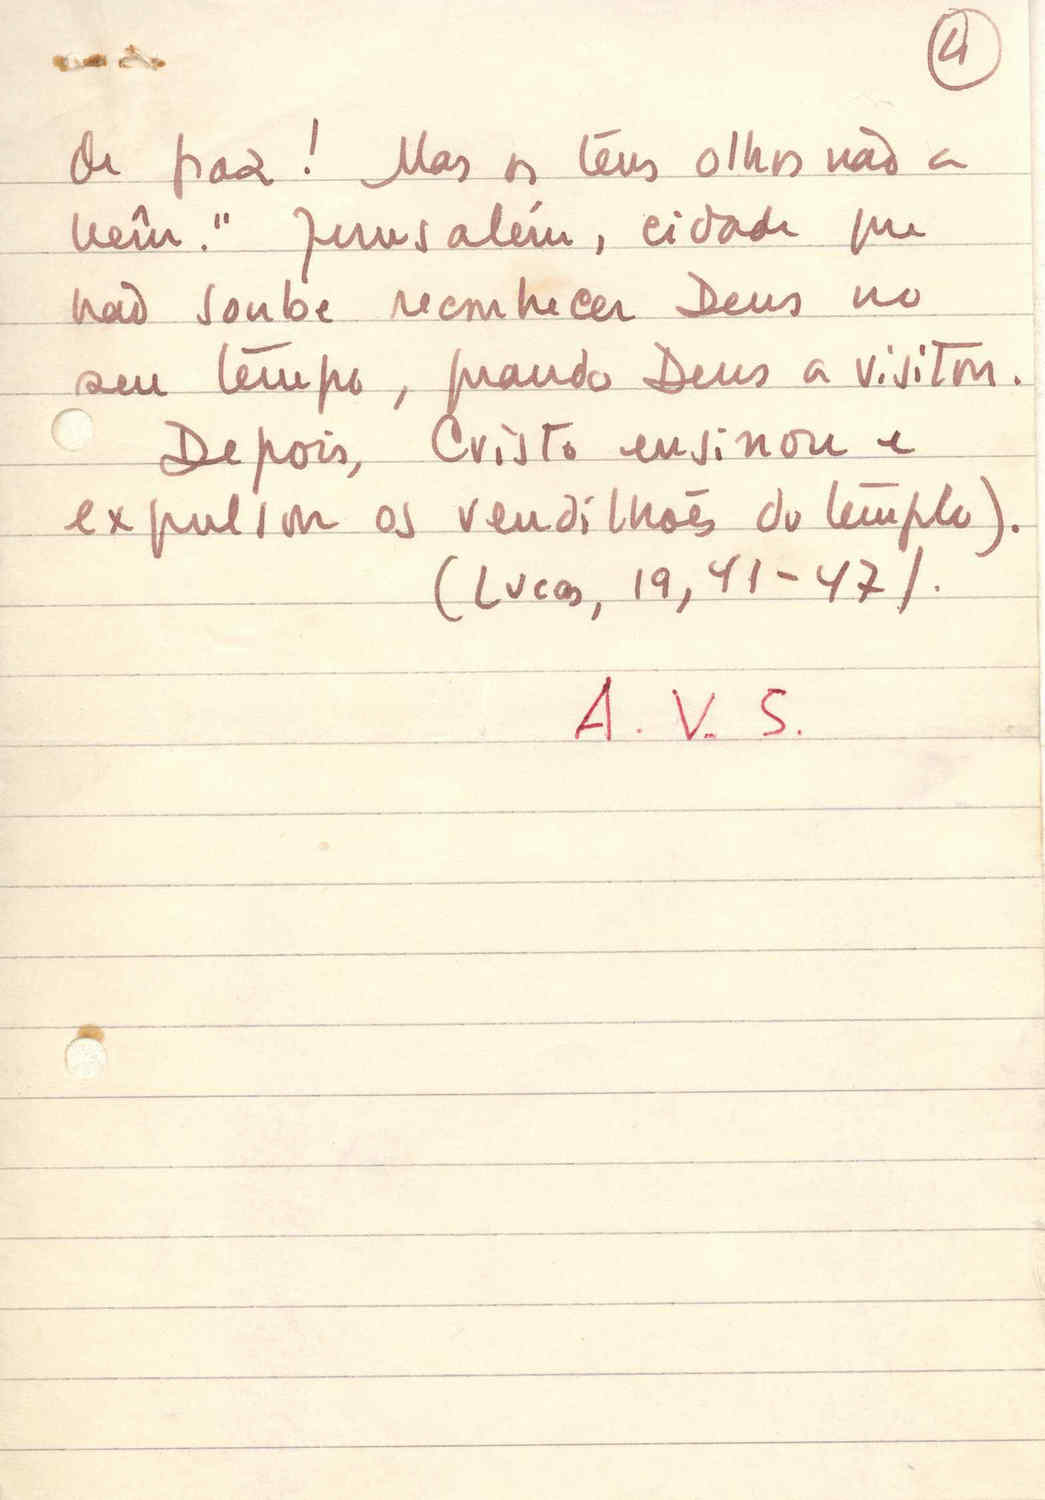 4
de paz! Mas os teus olhos não a
vêm." Jerusalém, cidade que
não soube reconhecer Deus no
seu tempo, quando Deus a visitou.
Depois, Cristo ensinou e
expulsou os vendilhões do templo).
(Lucas, 19, 41-47).
A. V. S.